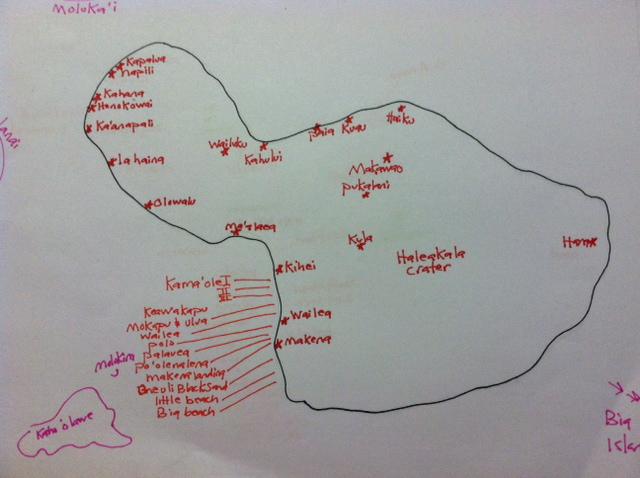 Moloka'i
Kapalua
Napili
Kahana
Honokowai
Ka'anapali
Lanai
Lahaina
Wailuku
Kahului
Paia
Kuau
Haiku
Makawao
pukalani
Olowalu
Ma'alaea
Kula
Haleakala
crater
Hana
Kihei
Kama'ole I
II
III
Keawakapu
Mokapu & ulua
Wailea
polo
palauea
po'olenalena
makena landing
Oneuli Black Sand
little beach
Big beach
Wailea
Makena
molokini
Kaho'olawe
Big
Islan